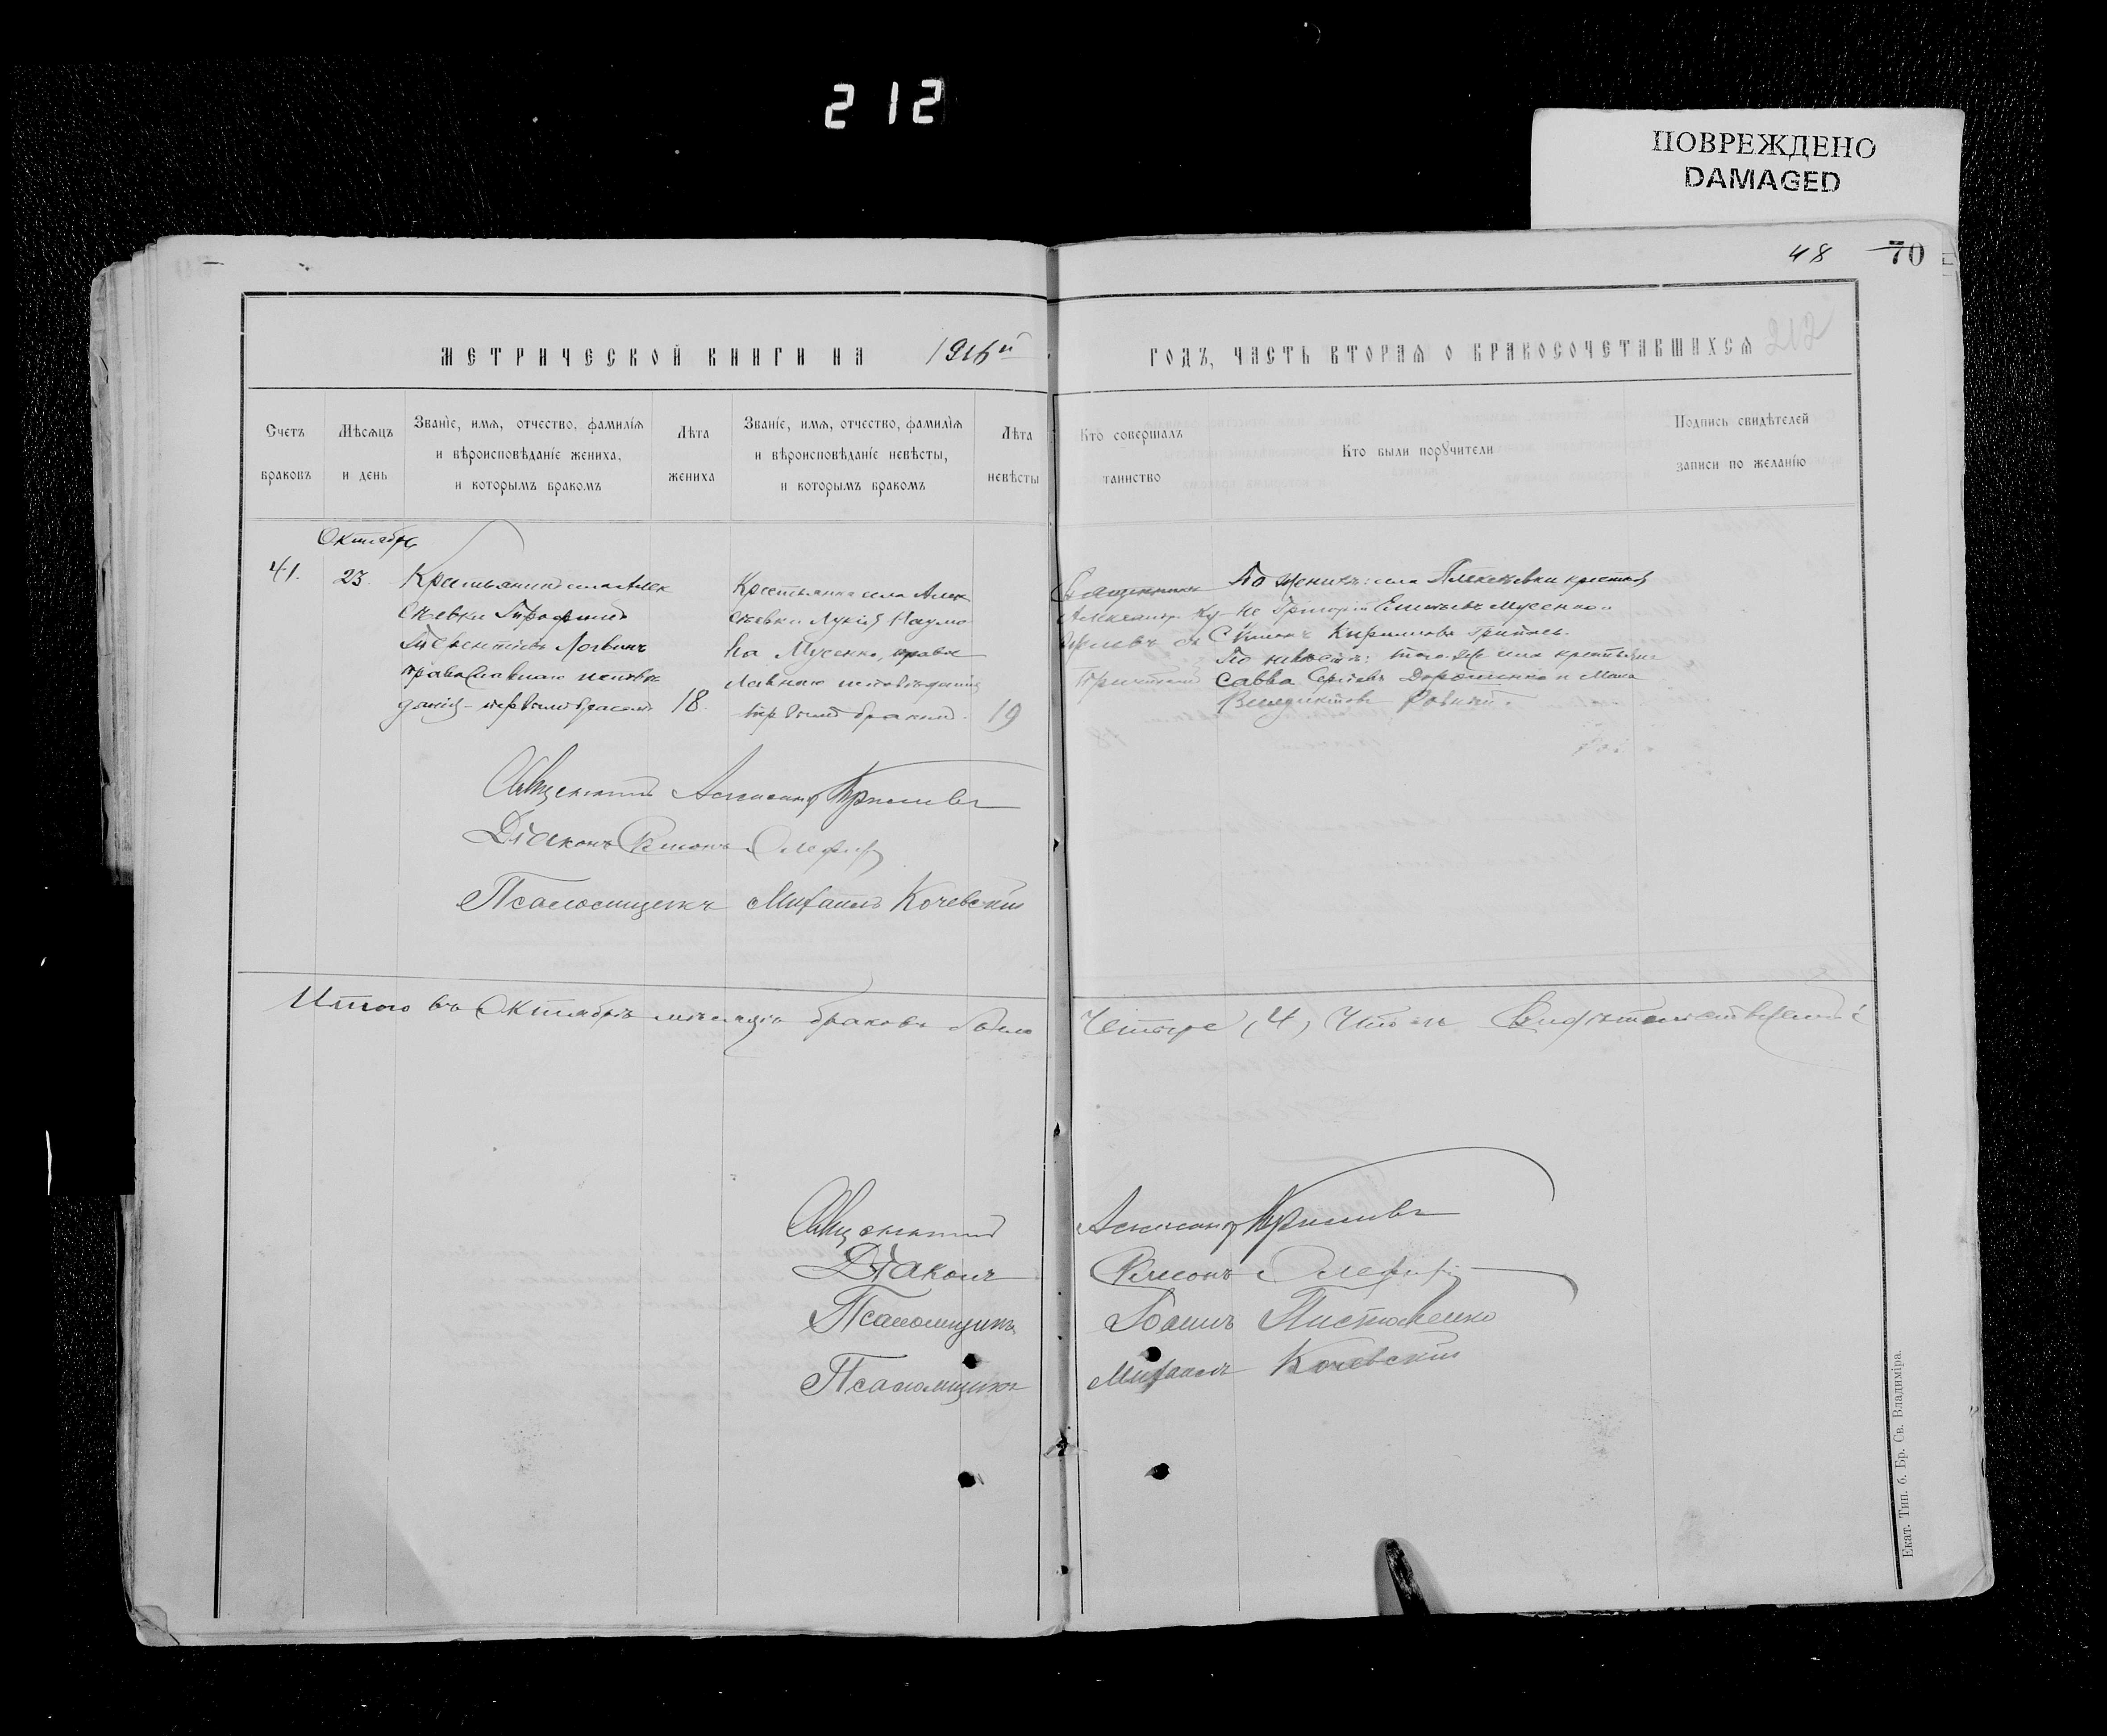 212
ПОВРЕЖДЕНО
DAMAGED
48 70
МЕТРИЧЕСКОЙ КНИГИ НА 1916й ГОДЪ, ЧАСТЬ ВТОРАЯ О БРАКОСОЧЕТАВШИХСЯ 212
Счетъ браковъ
Мѣсяцъ и день
Званіе, имя, отчество, фамилія
и вѣроисповѣданіе жениха,
и которымъ бракомъ
Лѣта жениха
Званіе, имя, отчество, фамилія
и вѣроисповѣданіе невѣсты,
и которымъ бракомъ
Лѣта невѣсты
Кто совершалъ таинство
Кто были поручители
Подпись свидѣтелей
записи по желанію
Октябрь
41. 23.
Крестьянинъ села Алек
сѣевки Трофимъ
Терентіевъ
православнаго исповѣ
данія первымъ бракомъ 18.
Крестьянка села Алек
сѣевки Лукія Наумо
ва Мусенко, право
славнаго исповѣданія
первымъ бракомъ. 19
Священникъ
Александръ
съ
Причтомъ
По женихѣ: села Алексѣевки крестья
не Григорій Мусенко и
Симонъ Кирилловъ
По невѣстѣ: того-же села крестьяне
Савва Сергіевъ Дорошенко и
Венедиктовъ
Священникъ Александръ
Діаконъ Симонъ
Псаломщикъ Михаилъ Кочевскій
Итого въ Октябрѣ мѣсяцѣ браковъ было Четыре (4)
Священникъ Александръ
Діаконъ Симонъ
Псаломщикъ Іоаннъ
Псаломщикъ Михаилъ Кочевскій
Екат. Тип. б. Бр. Св. Владиміра.